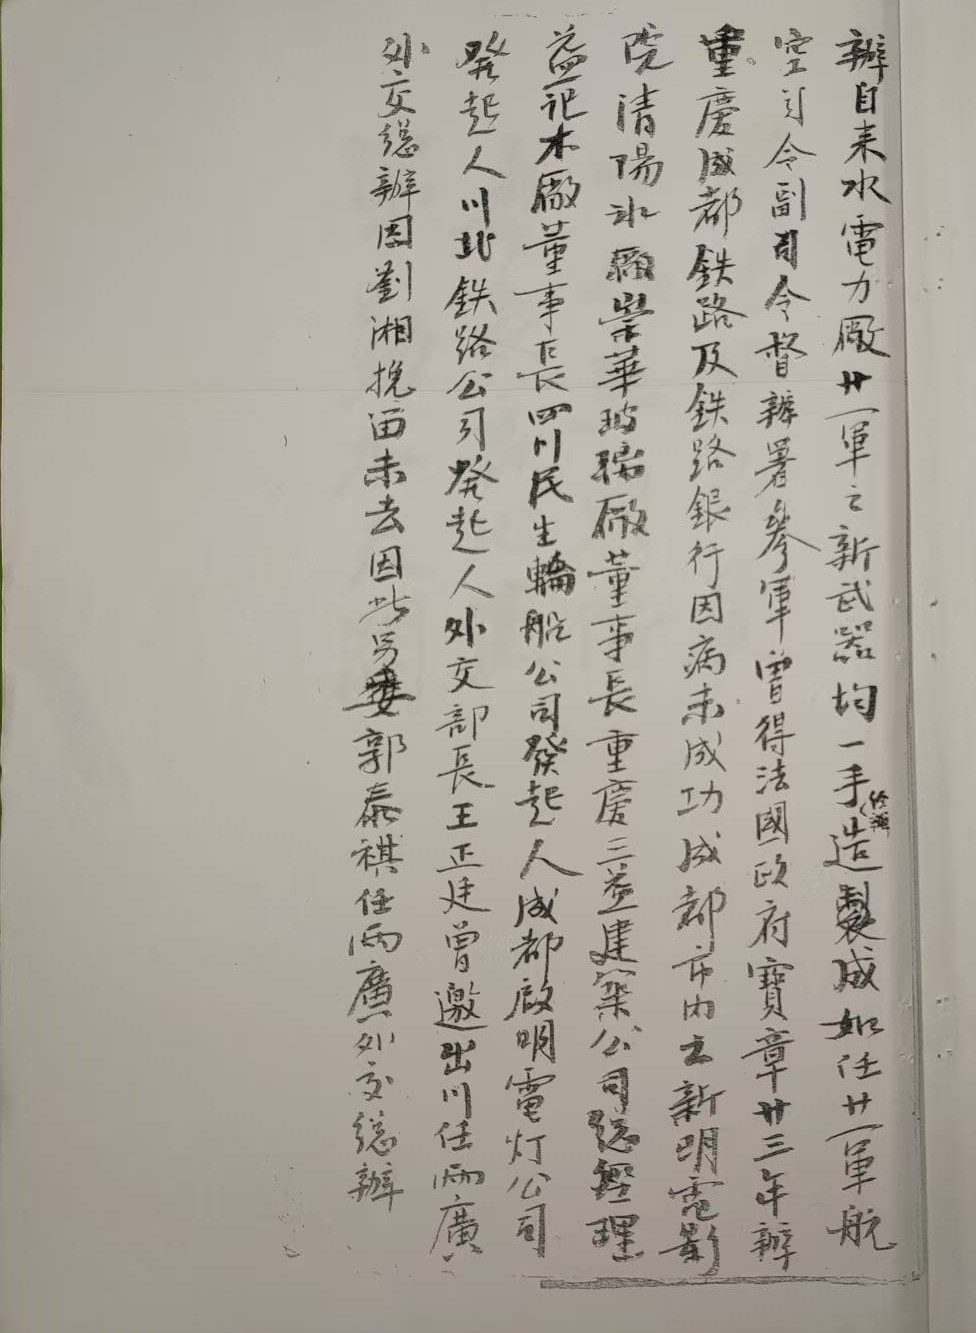 辦自来水電力廠廿一軍之新武器均一手經辦造製成如任廿一軍航
空司令副司令督辦署參軍曾得法國政府寶章廿三年辦
重慶成都鉄路及鉄路銀行因病未成功成都市内之新明電影
院清陽氷廠榮華玻璃廠董事長重慶三益建築公司総經理
益記木廠董事長四川民生輪船公司發起人成都啟明電灯公司
發起人川北鉄路公司發起人外交部長王正廷曾邀出川任兩廣
外交総辦因劉湘挽留未去因此另委郭泰祺任兩廣外交総辦